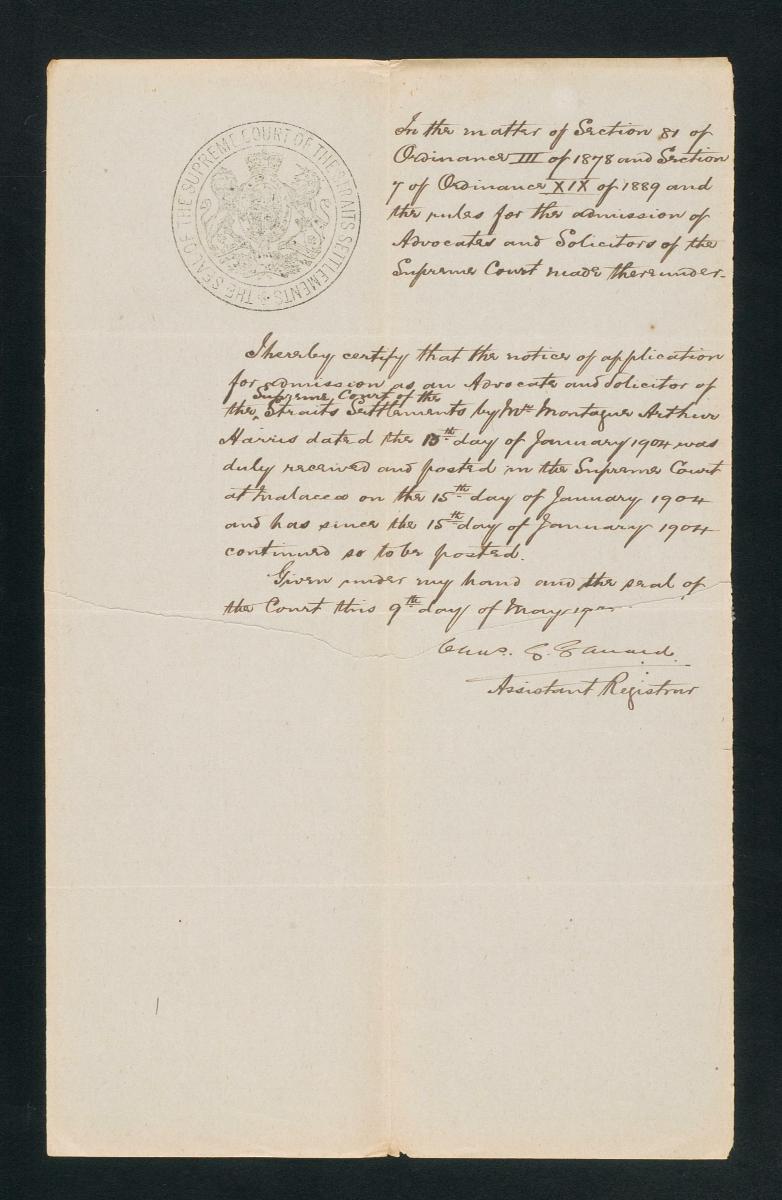 THE SEAL OF THE SUPREME COURT OF THE STRAITS SETTLEMENTS
In the matter of Section 81 of
Ordinance III of 1878 and Section
7 of Ordinance XIX of 1889 and
the rules for the admission of
Advocates and Solicitors of the
Supreme Court made thereunder.
I hereby certify that the notice of application
for admission as an Advocate and Solicitor of
Supreme Court of the
the Straits Settlements by Mr. Montague Arthur
Harris dated the 13th day of January 1904 was
duly received and posted in the Supreme Court
at Malacca on the 15th day of January 1904
and has since the 15th day of January 1904
continued so to be posted.
Given under my hand and the seal of
the Court this 9th day of May
Assistant Registrar